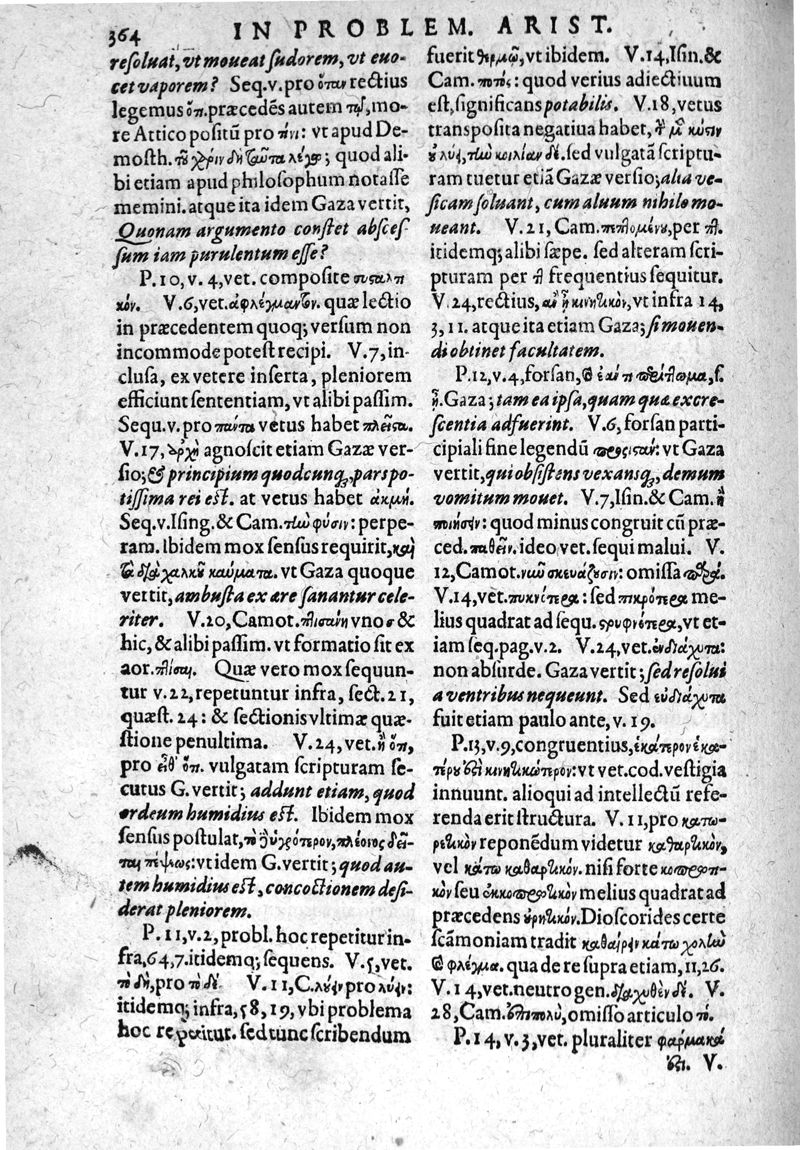 364 IN PROBLEM. ARIST.
resoluat, vt moueat sudorem, vt euo-
cet vaporem? Seq. v. pro ὅταν rectius
legemus ὅπ. præcedēs autem τῳ, mo-
re Attico positū pro τινι: vt apud De-
mosth. τοῦ χάριν δὴ ταῦτα λέγω; quod ali-
bi etiam apud philosophum notasse
memini. atque ita idem Gaza vertit,
Quonam argumento constet absces-
sum iam purulentum esse?
P. 10, v. 4, vet. composite συσταλτι-
κόν. V. 6, vet. ἀφλέγμαντον. quæ lectio
in præcedentem quoq; versum non
incommode potest recipi. V. 7, in-
clusa, ex vetere inserta, pleniorem
efficiunt sententiam, vt alibi passim.
Sequ. v. pro πάντα vetus habet πλεῖστα.
V. 17, ἀρχὴ agnoscit etiam Gazæ ver-
sio; & principium quodcunq;, pars po-
tissima rei est. at vetus habet ἀκμή.
Seq. v. Ising. & Cam. τὴν φύσιν: perpe-
ram. Ibidem mox sensus requirit, καὶ
τὰ διὰ χαλκοῦ καύματα. vt Gaza quoque
vertit, ambusta ex ære sanantur cele-
riter. V. 20, Camot. πτισάνη vno σ &
hic, & alibi passim. vt formatio sit ex
aor. πτίσαι. Quæ vero mox sequun-
tur v. 22, repetuntur infra, sect. 21,
quæst. 24: & sectionis vltimæ quæ-
stione penultima. V. 24, vet. ἢ ὅτι,
pro εἶθ' ὅτι. vulgatam scripturam se-
cutus G. vertit; addunt etiam, quod
ordeum humidius est. Ibidem mox
sensus postulat, τὸ ὑγρότερον, πλέονος δεῖ-
ται πέψεως: vt idem G. vertit; quod au-
tem humidius est, concoctionem desi-
derat pleniorem.
P. 11, v. 2, probl. hoc repetitur in-
fra, 64, 7. itidemq; sequens. V. 5, vet.
τὸ δὴ, pro τὸ δὲ. V. 11, C. λύειν pro λύειν:
itidemq; infra, 58, 19, vbi problema
hoc repetitur. sed tunc scribendum
fuerit θερμῷ, vt ibidem. V. 14, Isin. &
Cam. ποτῆς: quod verius adiectiuum
est, significans potabilis. V. 18, vetus
transposita negatiua habet, τὴν μὲν κύστιν
οὐ λύῃ, τὴν κοιλίαν δέ. sed vulgatā scriptu-
ram tuetur etiā Gazæ versio; alia ve-
sicam soluant, cum aluum nihilo mo-
ueant. V. 21, Cam. πεπλομένου, per πλ.
itidemq; alibi sæpe. sed alteram scri-
pturam per frequentius sequitur.
V. 24, rectius, ἂν ᾖ κινητικὸν, vt infra 14,
3, 11. atque ita etiam Gaza; si mouen-
di obtinet facultatem.
P. 12, v. 4, forsan, ᾖ. Gaza; tam ea ipsa, quam quæ excre-
scentia adfuerint. V. 6, forsan parti-
cipiali fine legendū προσιστάν: vt Gaza
vertit, qui obsistens vexansq;, demum
vomitum mouet. V. 7, Isin. & Cam. ἢ
ποιήσειν: quod minus congruit cū præ-
ced. παθεῖν. ideo vet. sequi malui. V.
12, Camot. σκευάζουσιν: omissa
V. 14, vet. πυκνότερα: sed πικρότερα me-
lius quadrat ad sequ. στρυφνότερα, vt et-
iam seq. pag. v. 2. V. 24, vet. ἐνδιάχυτα:
non absurde. Gaza vertit; sed resolui
a ventribus nequeunt. Sed εὐδιάχυτα
fuit etiam paulo ante, v. 19.
P. 13, v. 9, congruentius, ἑκάτερον ἑκα-
τέρου ἐστὶ κινητικώτερον: vt vet. cod. vestigia
innuunt. alioqui ad intellectū refe-
renda erit structura. V. 11, pro κατω-
ρετικὸν reponēdum videtur καθαρτικὸν,
vel κάτω καθαρτικόν. nisi forte κοπροτι-
κὸν seu ἐκκοπρωτικὸν melius quadrat ad
præcedens οὐρητικόν. Dioscorides certe
scāmoniam tradit καθαίρειν κάτω χολὴν
καὶ φλέγμα. qua de re supra etiam, 11, 26.
V. 14, vet. neutro gen. διαχυθὲν δέ. V.
28, Cam. ἐπιπολὺ, omisso articulo τό.
P. 14, v. 3, vet. pluraliter φαρμακά
ἐστι. V.